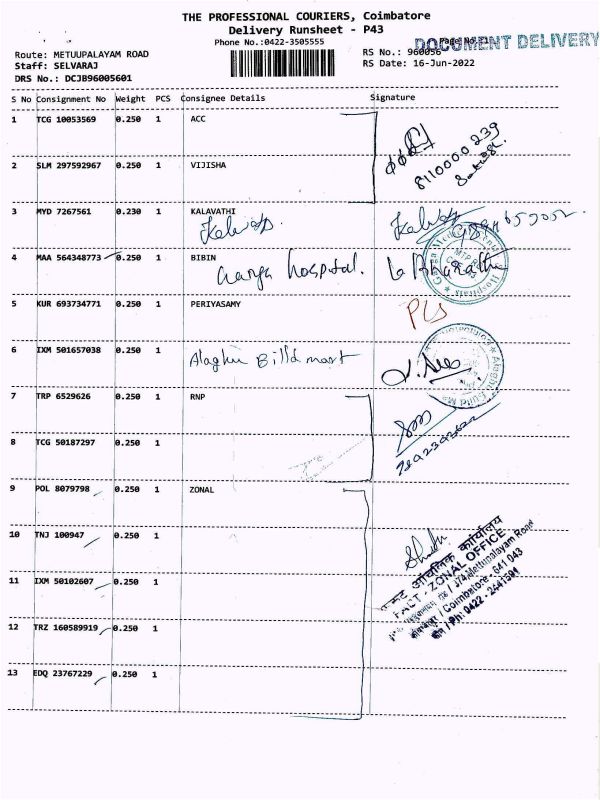 THE PROFESSIONAL COURIERS, Coimbatore
Delivery Runsheet - P43
Phone No.:0422-3505555
DOCUMENT DELIVERY
Route: METUUPALAYAM ROAD
RS No.: 960056
Staff: SELVARAJ
RS Date: 16-Jun-2022
DRS No.: DCJB96005601
S No Consignment No Weight PCS Consignee Details Signature
1 TCG 10053569 0.250 1 ACC
8110000239
2 SLM 297592967 0.250 1 VIJISHA
3 MYD 7267561 0.230 1 KALAVATHI
4 MAA 564348773 0.250 1 BIBIN
Ganga hospital.
5 KUR 693734771 0.250 1 PERIYASAMY
6 IXM 501657038 0.250 1
7 TRP 6529626 0.250 1 RNP
8 TCG 50187297 0.250 1
9 POL 8079798 0.250 1 ZONAL
10 TNJ 100947 0.250 1
11 IXM 50102607 0.250 1
FACT - ZONAL OFFICE
/ 374,Mettupalayam Road
/ Coimbatore - 641 043
/ Ph: 0422 - 2441591
12 TRZ 160589919 0.250 1
13 EDQ 23767229 0.250 1